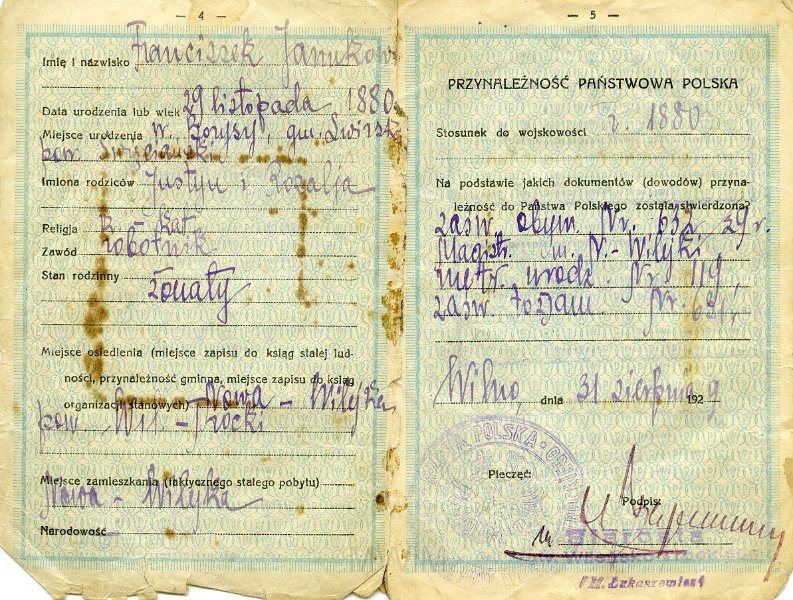 — 4 —
Imię i nazwisko Franciszek Janukow
Data urodzenia lub wiek 29 listopada 1880
Miejsce urodzenia w. Borysy, gm. Świrsk
pow. Święciański
Imiona rodziców Justyn i Rozalja
Religja R-kat
Zawód robotnik
Stan rodzinny
żonaty
Miejsce osiedlenia (miejsce zapisu do ksiąg stałej lud-
ności, przynależność gminna, miejsce zapisu do ksiąg
organizacji stanowych) Nowa-Wilejka
pow. Wil.-Trocki
Miejsce zamieszkania (faktycznego stałego pobytu)
Nowa-Wilejka
Narodowość
— 5 —
PRZYNALEŻNOŚĆ PAŃSTWOWA POLSKA
Stosunek do wojskowości r. 1880
Na podstawie jakich dokumentów (dowodów) przyna-
leżność do Państwa Polskiego została stwierdzona?
zasw. obyw. Nr. 632 29 r.
Magistr. m. N.-Wilejki
metr. urodz. Nr 119,
zasw. tożsam. Nr.
Wilno, dnia 31 sierpnia 1929
POLSKA
Pieczęć:
Podpis: